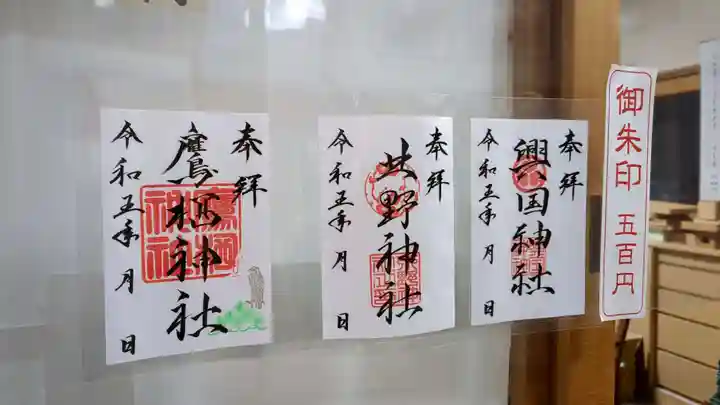 奉拝
鷹栖神社
令和五年 月 日
奉拝
北野神社
令和五年 月 日
奉拝
興国神社
令和五年 月 日
御朱印 五百円